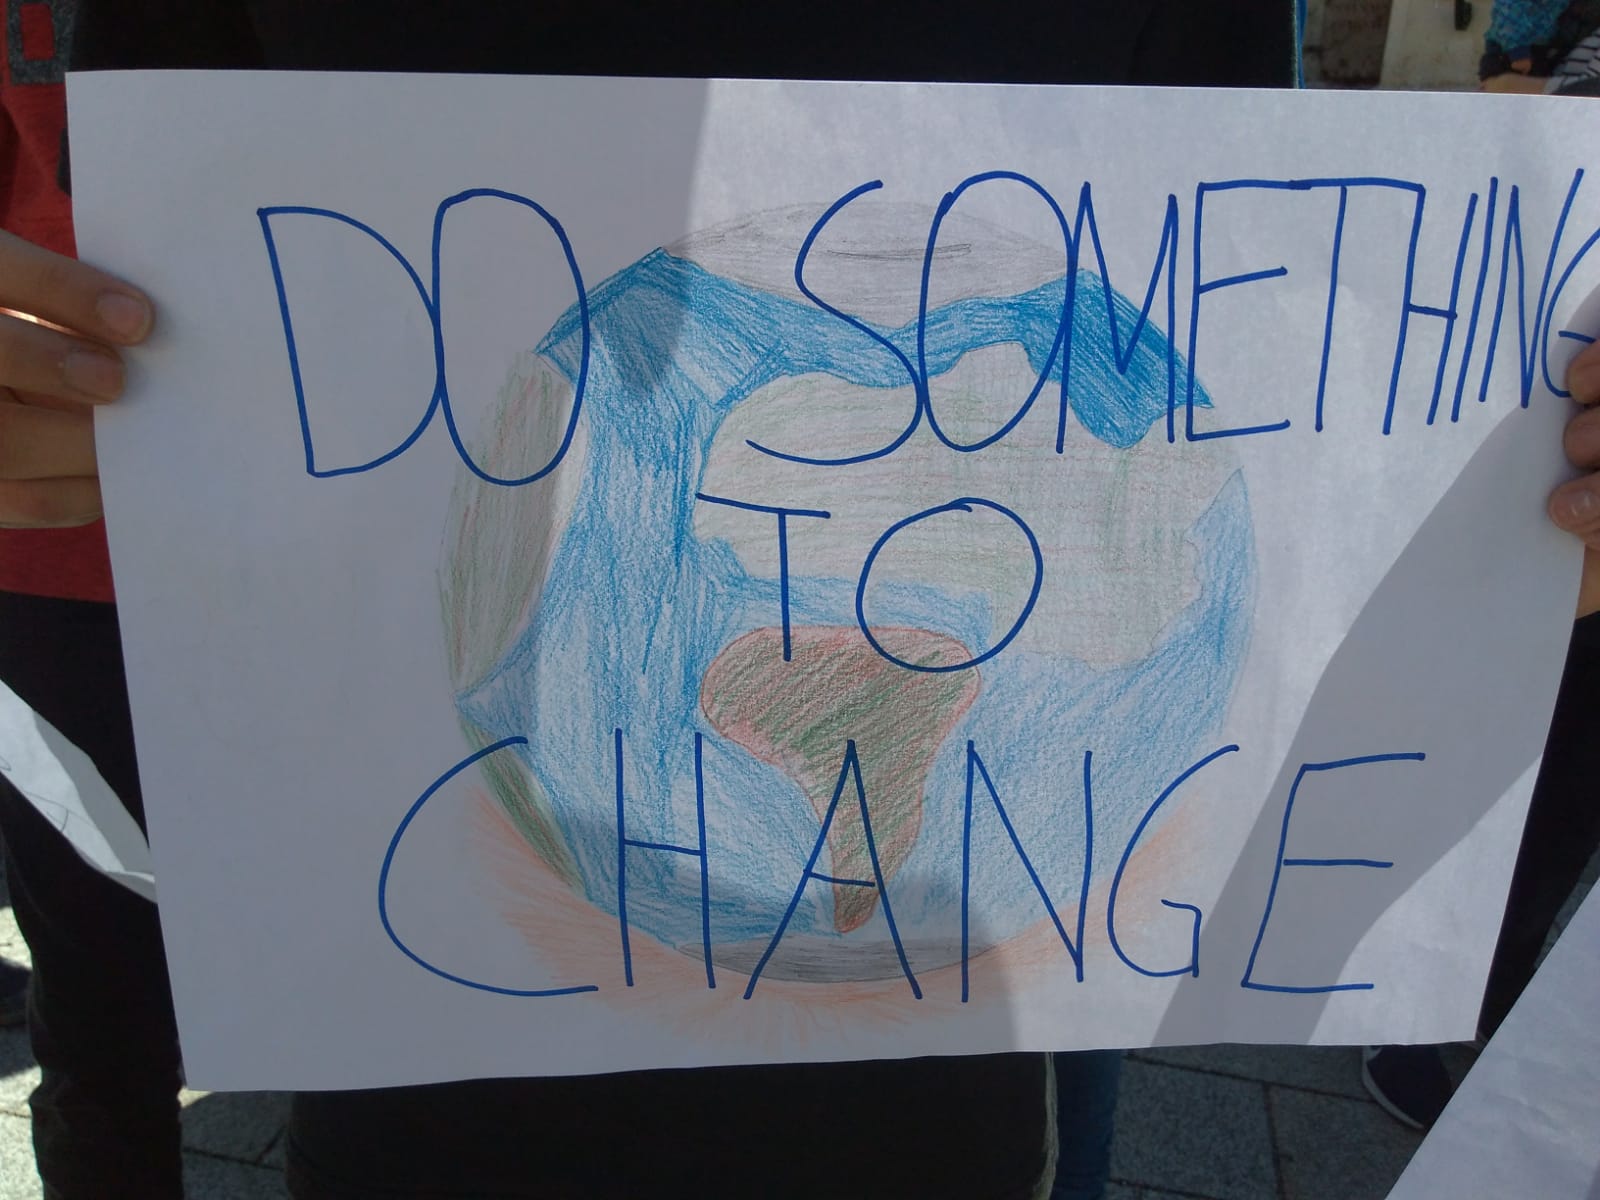 DO SOMETHING
TO
CHANGE